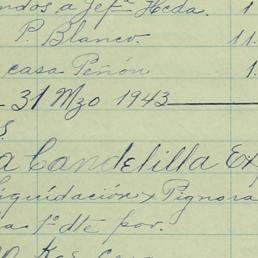 ndos a Jefª Hcda. 1
P. Blanco. 11.
casa Peñón 1.
31 Mzo 1943
s.
a Candelilla Ex
iquidación x Pignora
a 1º dte por.
Kgs. cera